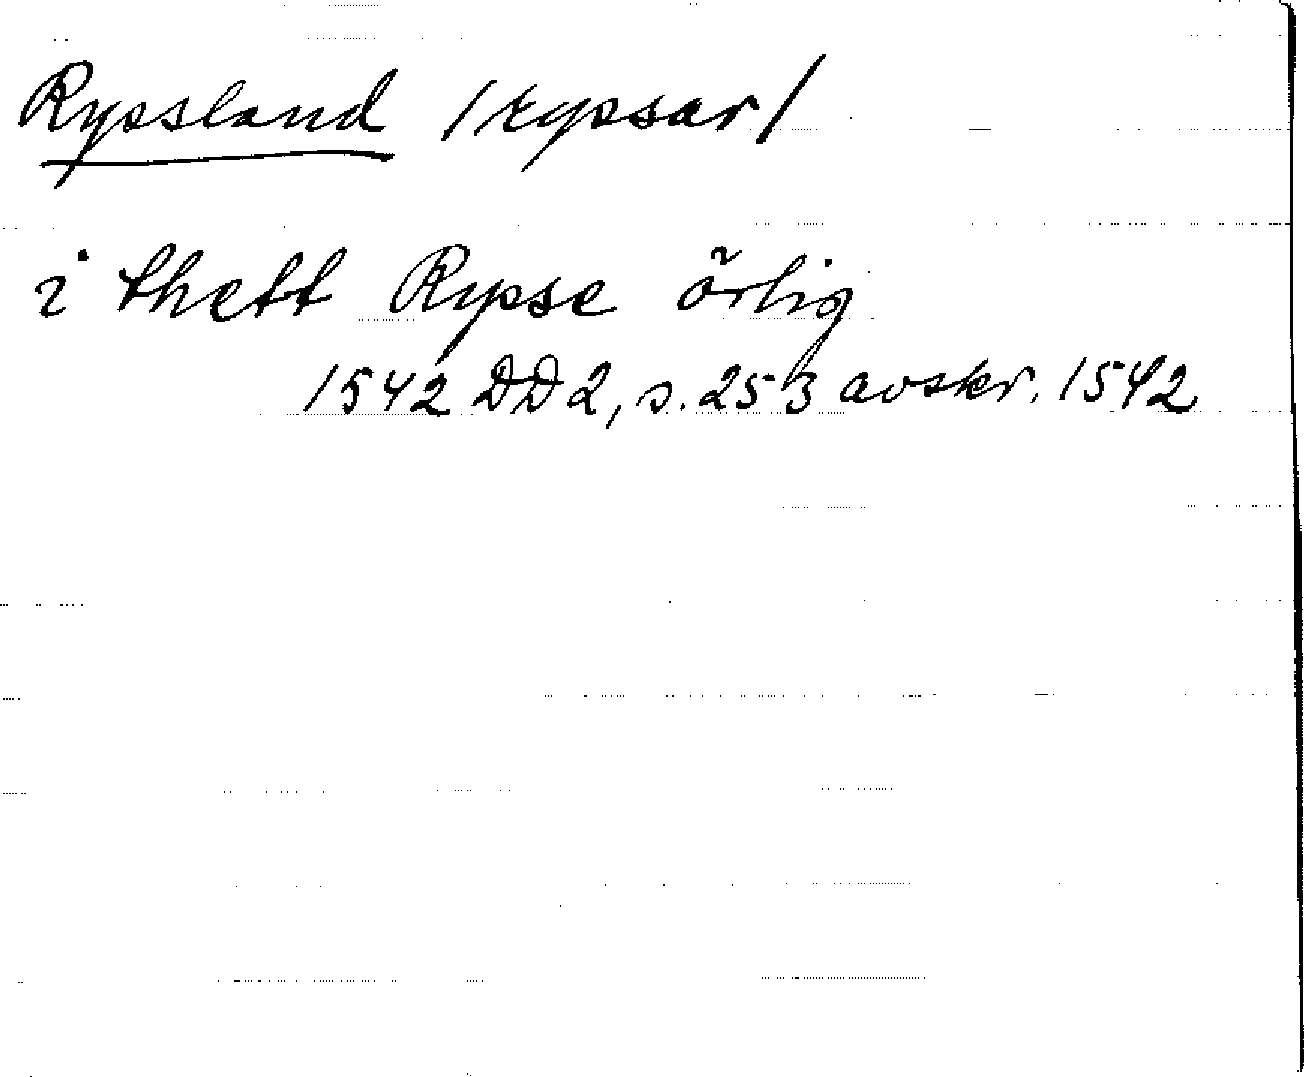 Ryssland /ryssar/
i thett Rysse örlig
1542 DD2, s. 253 avskr. 1542